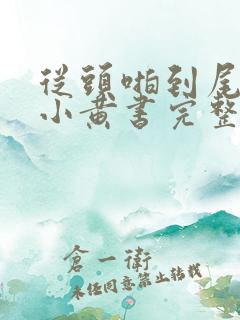 從頭啪到尾
小黃書完整
倉一衛
未任同意禁止转載